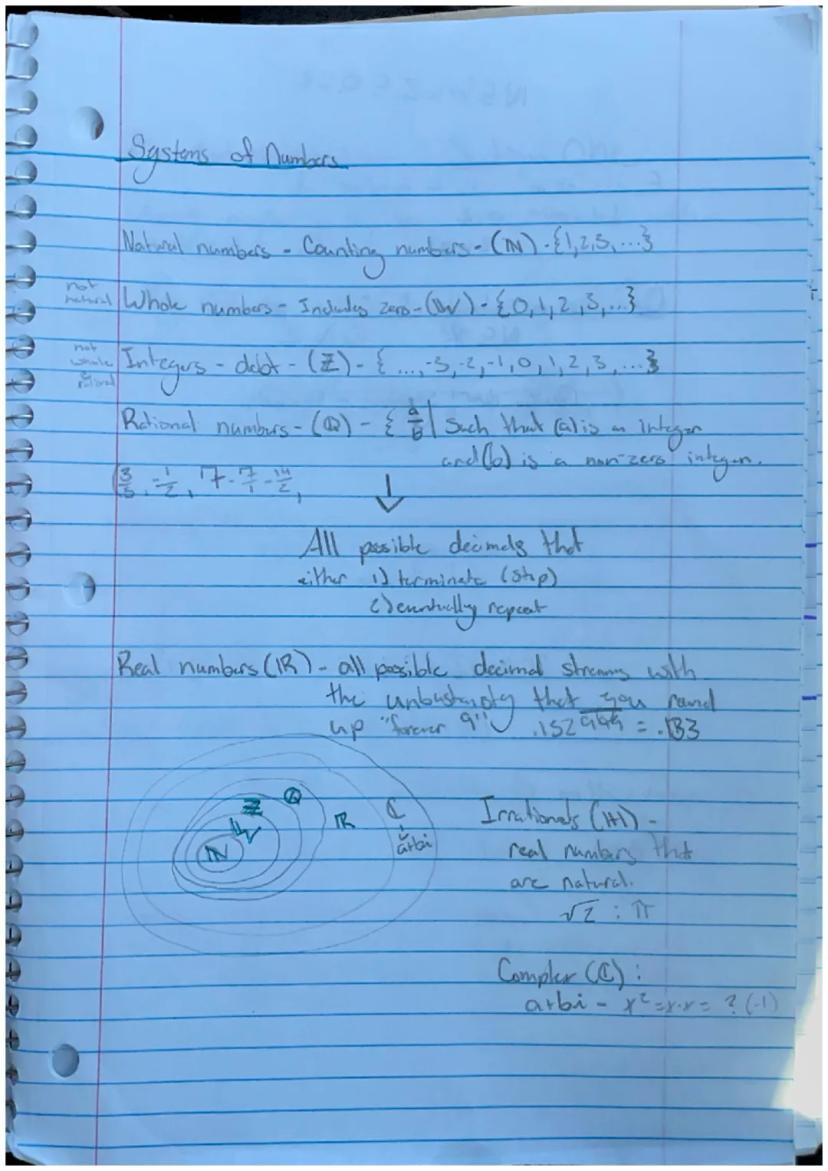 Systems of Numbers
Natural numbers - Counting numbers - (ℕ) - {1,2,3,...}
not natural
Whole numbers - Includes zero - (𝕎) - {0,1,2,3,...}
not whole & natural
Integers - debt - (ℤ) - {...,-3,-2,-1,0,1,2,3,...}
Rational numbers - (ℚ) - { a/b | Such that (a) is an integer
and (b) is a non-zero integer.
(3/5, -1/2, 7 - 7/1 - 14/2,
↓
All possible decimals that
either 1) terminate (stop)
2) eventually repeat
Real numbers (ℝ) - all possible decimal streams with
the that you round
up "forever 9" .152999 = .153
ℕ 𝕎 ℤ ℚ ℝ ℂ
a+bi
Irrationals (ℍ) -
real numbers that
are natural.
√2 : π
Complex (ℂ) :
a+bi - x² = x·x = ? (-1)